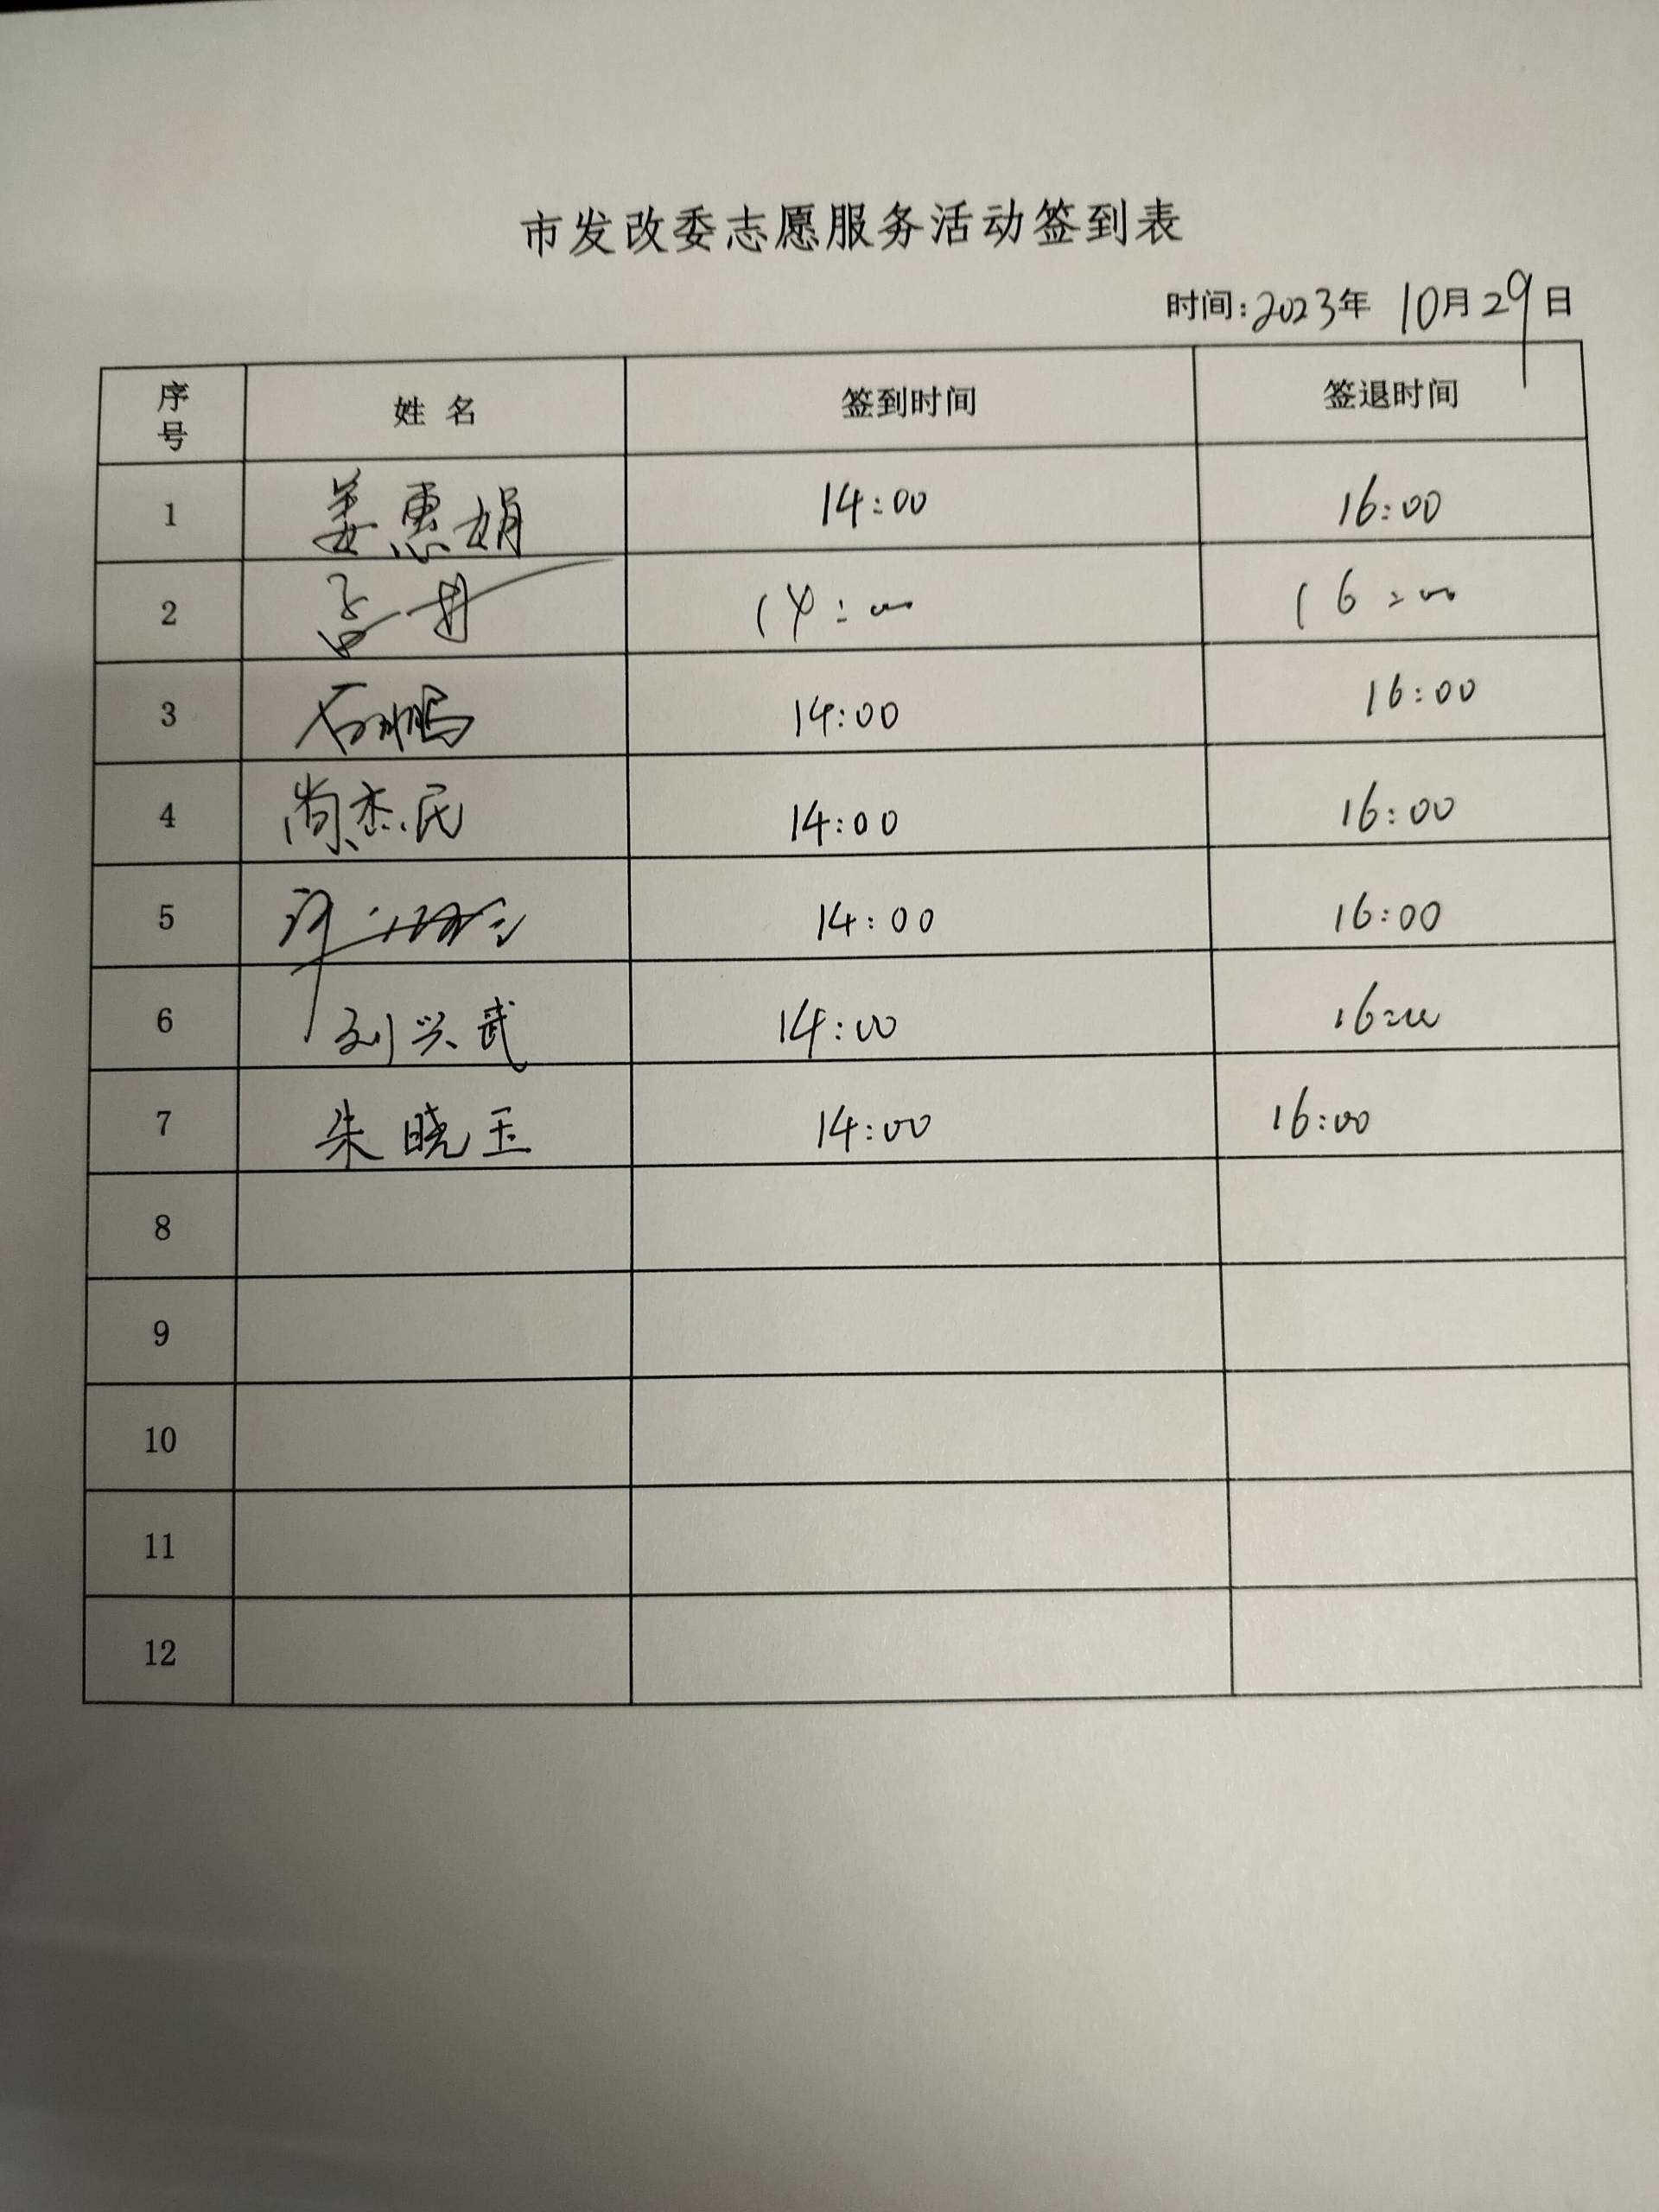 市发改委志愿服务活动签到表
时间:2023年 10月29日
序号 姓 名 签到时间 签退时间
1 姜惠娟 14:00 16:00
2 14:00 16:00
3 石鹏 14:00 16:00
4 尚杰民 14:00 16:00
5 14:00 16:00
6 刘兴武 14:00 16:00
7 朱晓玉 14:00 16:00
8
9
10
11
12